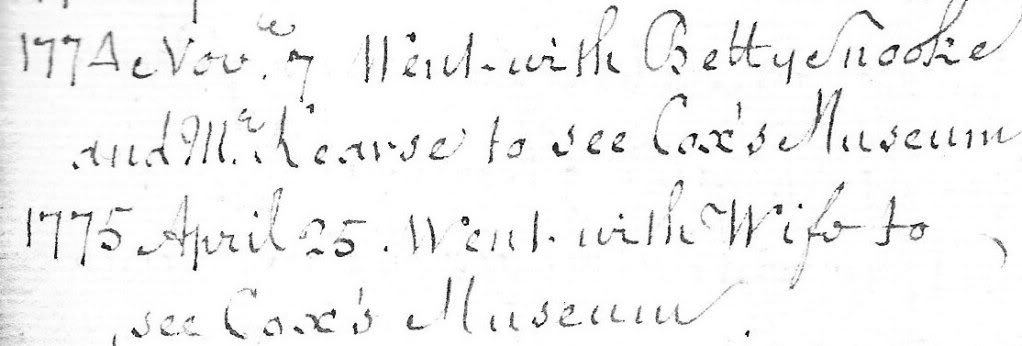 1774 Nov.r 7 Went with Betty
and Mr. Kearse to see Cox's Museum
1775 April 25. Went with Wife to
see Cox's Museum.